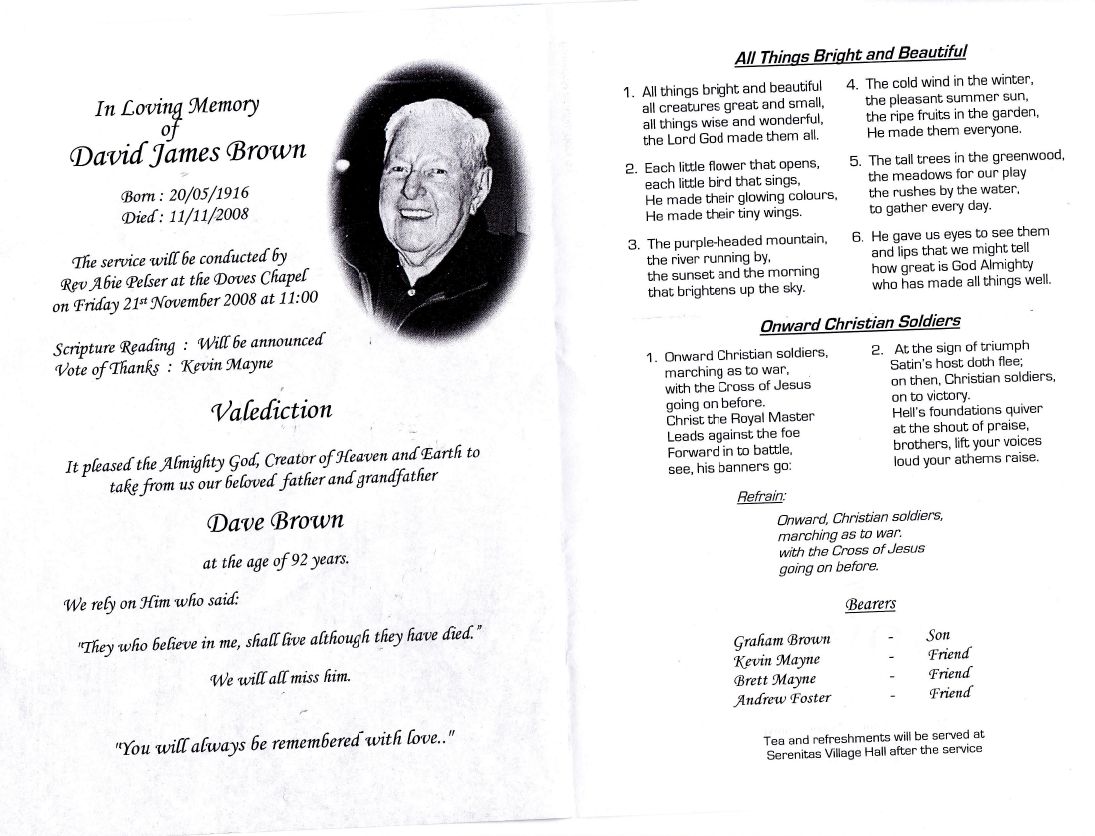 In Loving Memory
of
David James Brown
Born : 20/05/1916
Died : 11/11/2008
The service will be conducted by
Rev Abie Pelser at the Doves Chapel
on Friday 21st November 2008 at 11:00
Scripture Reading : Will be announced
Vote of Thanks : Kevin Mayne
Valediction
It pleased the Almighty God, Creator of Heaven and Earth to
take from us our beloved father and grandfather
Dave Brown
at the age of 92 years.
We rely on Him who said:
"They who believe in me, shall live although they have died."
We will all miss him.
"You will always be remembered with love.."
All Things Bright and Beautiful
1. All things bright and beautiful
all creatures great and small,
all things wise and wonderful,
the Lord God made them all.
2. Each little flower that opens,
each little bird that sings,
He made their glowing colours,
He made their tiny wings.
3. The purple-headed mountain,
the river running by,
the sunset and the morning
that brightens up the sky.
4. The cold wind in the winter,
the pleasant summer sun,
the ripe fruits in the garden,
He made them everyone.
5. The tall trees in the greenwood,
the meadows for our play
the rushes by the water,
to gather every day.
6. He gave us eyes to see them
and lips that we might tell
how great is God Almighty
who has made all things well.
Onward Christian Soldiers
1. Onward Christian soldiers,
marching as to war,
with the Cross of Jesus
going on before.
Christ the Royal Master
Leads against the foe
Forward in to battle,
see, his banners go:
2. At the sign of triumph
Satin's host doth flee;
on then, Christian soldiers,
on to victory.
Hell's foundations quiver
at the shout of praise,
brothers, lift your voices
loud your athems raise.
Refrain:
Onward, Christian soldiers,
marching as to war.
with the Cross of Jesus
going on before.
Bearers
Graham Brown - Son
Kevin Mayne - Friend
Brett Mayne - Friend
Andrew Foster - Friend
Tea and refreshments will be served at
Serenitas Village Hall after the service